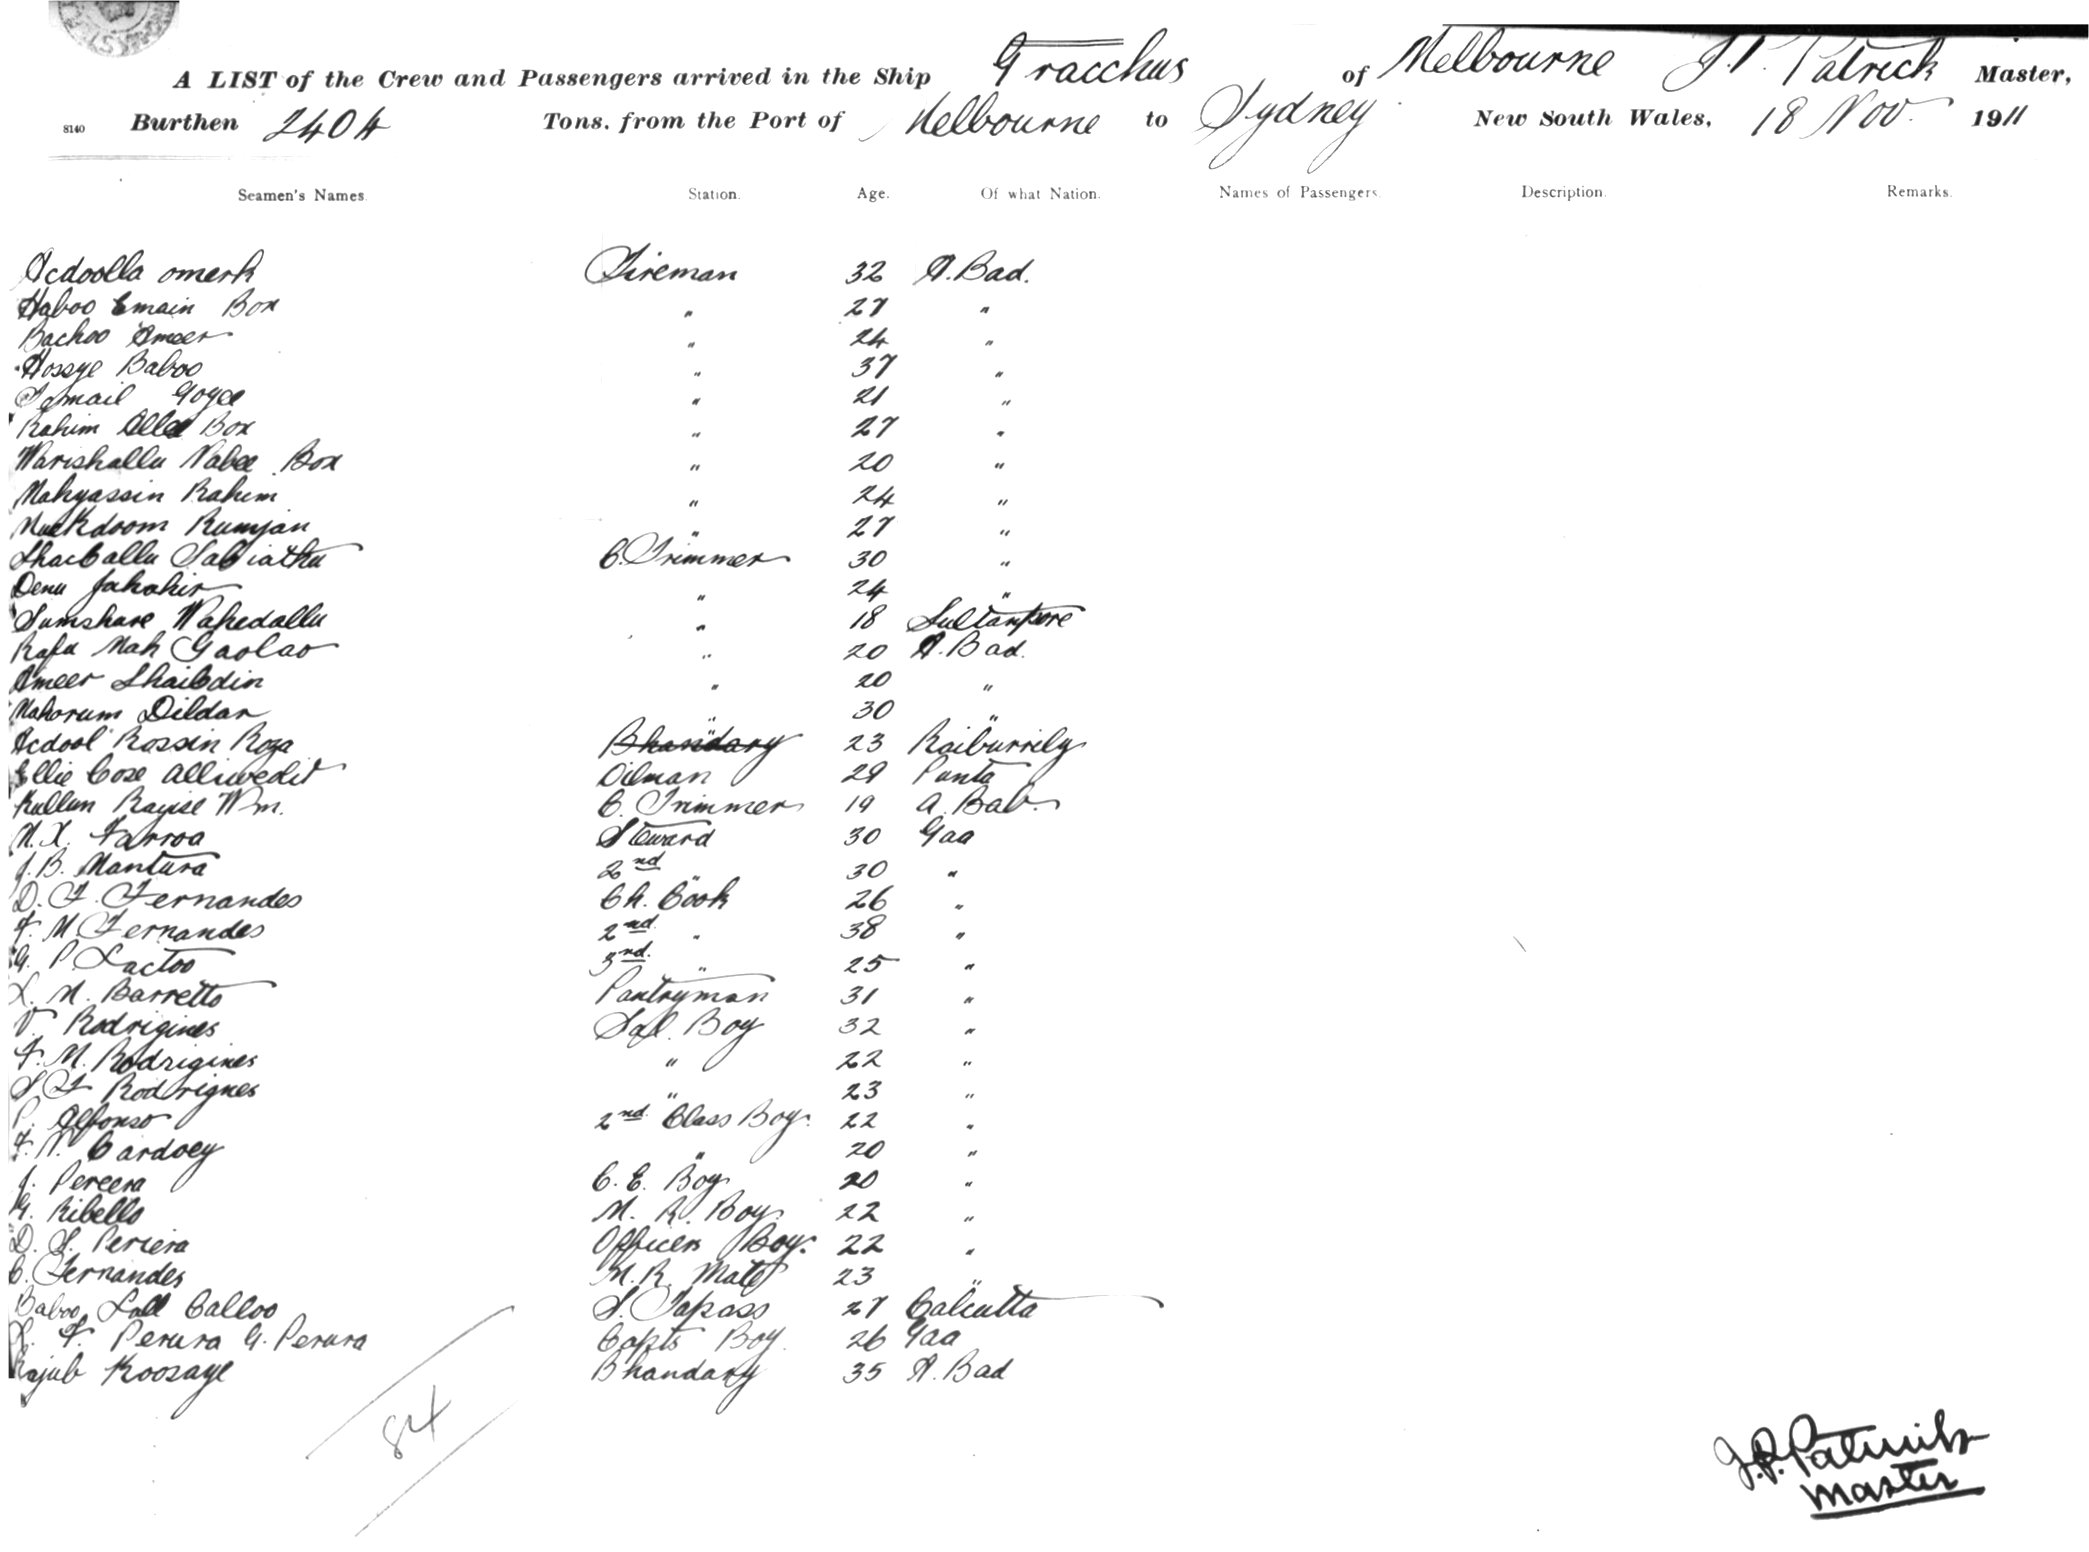 A LIST of the Crew and Passengers arrived in the Ship Gracchus of Melbourne J. P. Patrick Master,
8140 Burthen 2404 Tons, from the Port of Melbourne to Sydney New South Wales, 18 Nov. 1911
Seamen's Names. Station. Age. Of what Nation. Names of Passengers. Description. Remarks.
Acdoolla omerk Fireman 32 A. Bad.
Haboo Emain Box " 27 "
Bachoo Ameer " 24 "
Hossye Baboo " 37 "
Ismail Goyee " 21 "
Rahim Alla Box " 27 "
Warishallu Nabee Box " 20 "
Mahyassin Rahim " 24 "
Muckdoom Rumjan " 27 "
Shaiballu Sabiatku C. Trimmer 30 "
Denu Jahahir " 24 "
Sumshare Wahedallu " 18 Sultanpore
Rafu Mah Gaolao " 20 A. Bad.
Ameer Shaibdin " 20 "
Mahorum Dildar " 30 "
Acdool Rossin Roza Bhandary 23 Raiburrily
Ellie Coze alliwedit Oilman 29 Panta
Kullun Rayise Wm. C. Trimmer 19 A. Bab.
N. X. Farroa Steward 30 Gaa
J. B. Mantura 2nd " 30 "
D. F. Fernandes Ch. Cook 26 "
F. M. Fernandes 2nd " 38 "
G. P. Lactoo 3nd. " 25 "
L. M. Barretto Pantryman 31 "
V. Rodrigines Sal. Boy 32 "
F. M. Rodrigines " 22 "
S. F. Rodrignes " 23 "
P. Alfonso 2nd Class Boy. 22 "
F. N. Cardoey " 20 "
J. Pereera C. E. Boy 20 "
G. Ribello M. R. Boy. 22 "
D. S. Periera Officers Boy. 22 "
C. Fernandes M. R. Mate 23 "
Baboo Lall Calloo S. Topass 27 Calcutta
L. F. Perura G. Perura Capts Boy 26 Gaa
Rajub Koosaye Bhandary 35 A. Bad
84
J. P. Patrick
Master